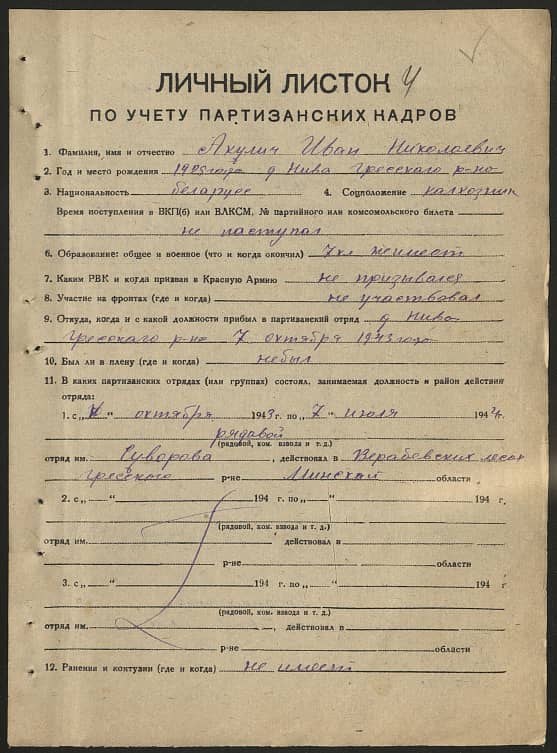 ЛИЧНЫЙ ЛИСТОК
ПО УЧЕТУ ПАРТИЗАНСКИХ КАДРОВ
1. Фамилия, имя и отчество Ахулич Иван Николаевич
2. Год и место рождения 1925 года д Нива Гресского р-на
3. Национальность беларус 4. Соцположение калхозник
Время поступления в ВКП(б) или ВЛКСМ, № партийного или комсомольского билета
не паступал
6. Образование: общее и военное (что и когда окончил) 7 кл
7. Каким РВК и когда призван в Красную Армию не призывался
8. Участие на фронтах (где и когда) не участвовал
9. Откуда, когда и с какой должности прибыл в партизанский отряд д Нива
Гресскаго р-на 7 октября 1943 года
10. Был ли в плену (где и когда) небыл
11. В каких партизанских отрядах (или группах) состоял, занимаемая должность и район действия
отряда:
1. с „ “ октября 1943 г. по „7“ июля 1944 г.
рядавой
(рядовой, ком. взвода и т. д.)
отряд им. Суворова, действовал в лесах
Гресского р-не Минской области
2. с „ “ 194 г. по „ “ 194 г
(рядовой, ком. взвода и т. д.)
отряд им. действовал в
р-не области
3. с „ “ 194 г. по „ “ 194 г
(рядовой, ком. взвода и т. д.)
отряд им. , действовал в
р-не области
12. Ранения и контузии (где и когда) не имеет